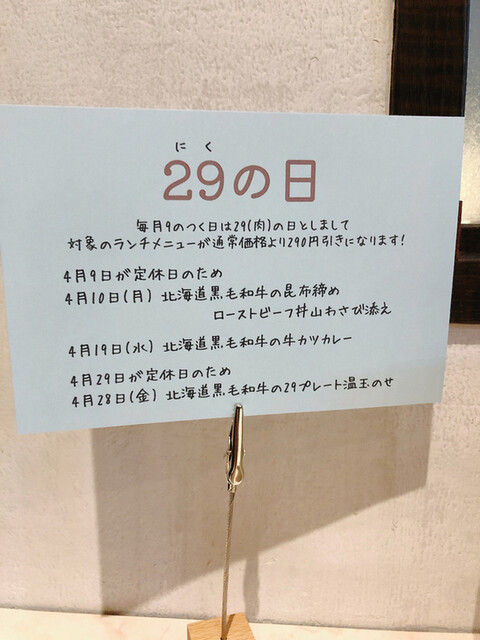 にく
29の日
毎月9のつく日は29(肉)の日としまして
対象のランチメニューが通常価格より290円引きになります!
4月9日が定休日のため
4月10日(月) 北海道黒毛和牛の昆布締め
ローストビーフ丼山わさび添え
4月19日(水) 北海道黒毛和牛の牛カツカレー
4月29日が定休日のため
4月28日(金) 北海道黒毛和牛の29プレート温玉のせ